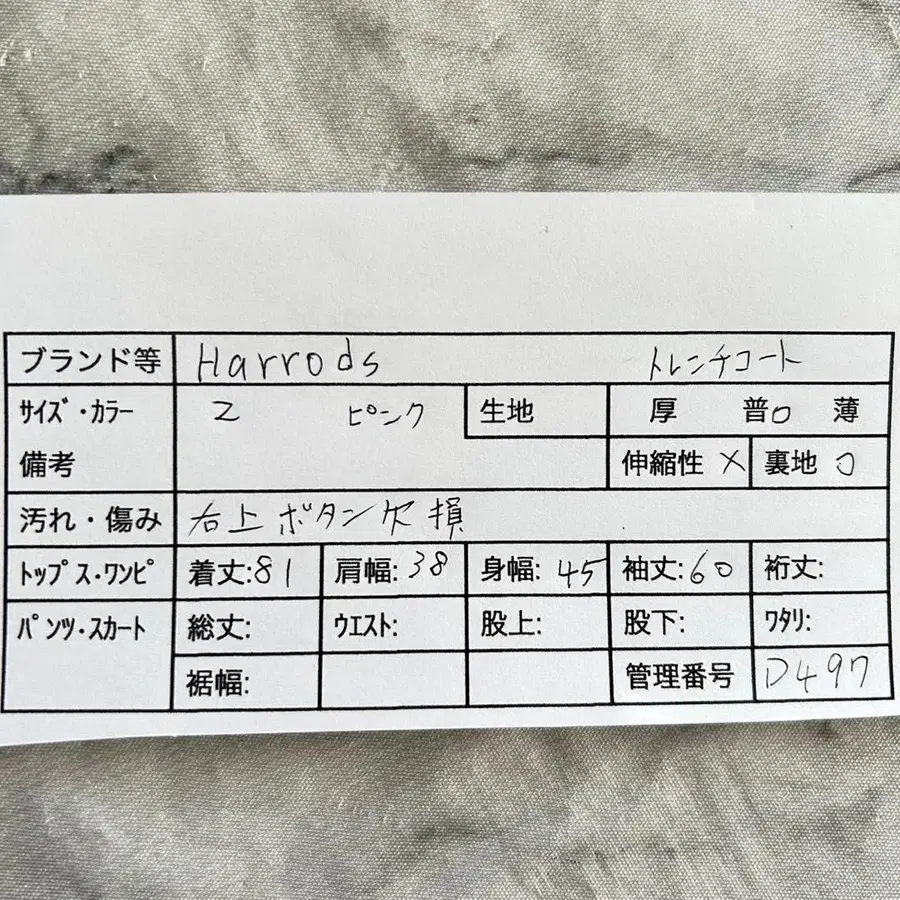 ブランド等 Harrods トレンチコート
サイズ・カラー 2 ピンク 生地 厚 普○ 薄
備考 伸縮性 × 裏地 ○
汚れ・傷み 右上ボタン欠損
トップス・ワンピ 着丈:81 肩幅:38 身幅:45 袖丈:60 裄丈:
パンツ・スカート 総丈: ウエスト: 股上: 股下: ワタリ:
裾幅: 管理番号 D497